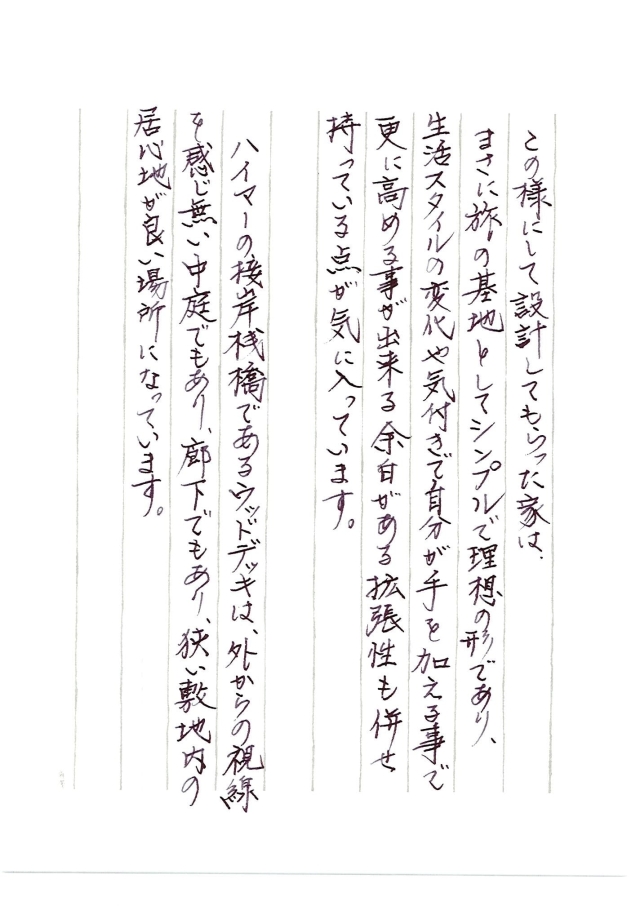 この様にして設計してもらった家は、
まさに旅の基地としてシンプルで理想の形であり、
生活スタイルの変化や気付きで自分が手を加える事で
更に高める事が出来る余白がある拡張性も併せ
持っている点が気に入っています。
ハイマーの接岸桟橋であるウッドデッキは、外からの視線
を感じ無い中庭でもあり、廊下でもあり、狭い敷地内の
居心地が良い場所になっています。